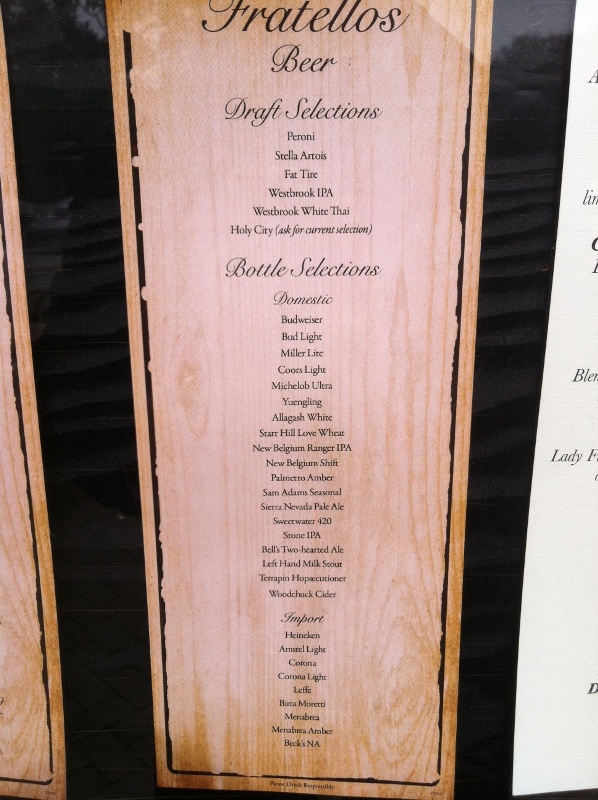 Fratellos
Beer
Draft Selections
Peroni
Stella Artois
Fat Tire
Westbrook IPA
Westbrook White Thai
Holy City (ask for current selection)
Bottle Selections
Domestic
Budweiser
Bud Light
Miller Lite
Coors Light
Michelob Ultra
Yuengling
Allagash White
Starr Hill Love Wheat
New Belgium Ranger IPA
New Belgium Shift
Palmetto Amber
Sam Adams Seasonal
Sierra Nevada Pale Ale
Sweetwater 420
Stone IPA
Bell's Two-hearted Ale
Left Hand Milk Stout
Terrapin Hopsecutioner
Woodchuck Cider
Import
Heineken
Amstel Light
Corona
Corona Light
Leffe
Birra Moretti
Menabrea
Menabrea Amber
Beck's NA
Please Drink Responsibly
Lady